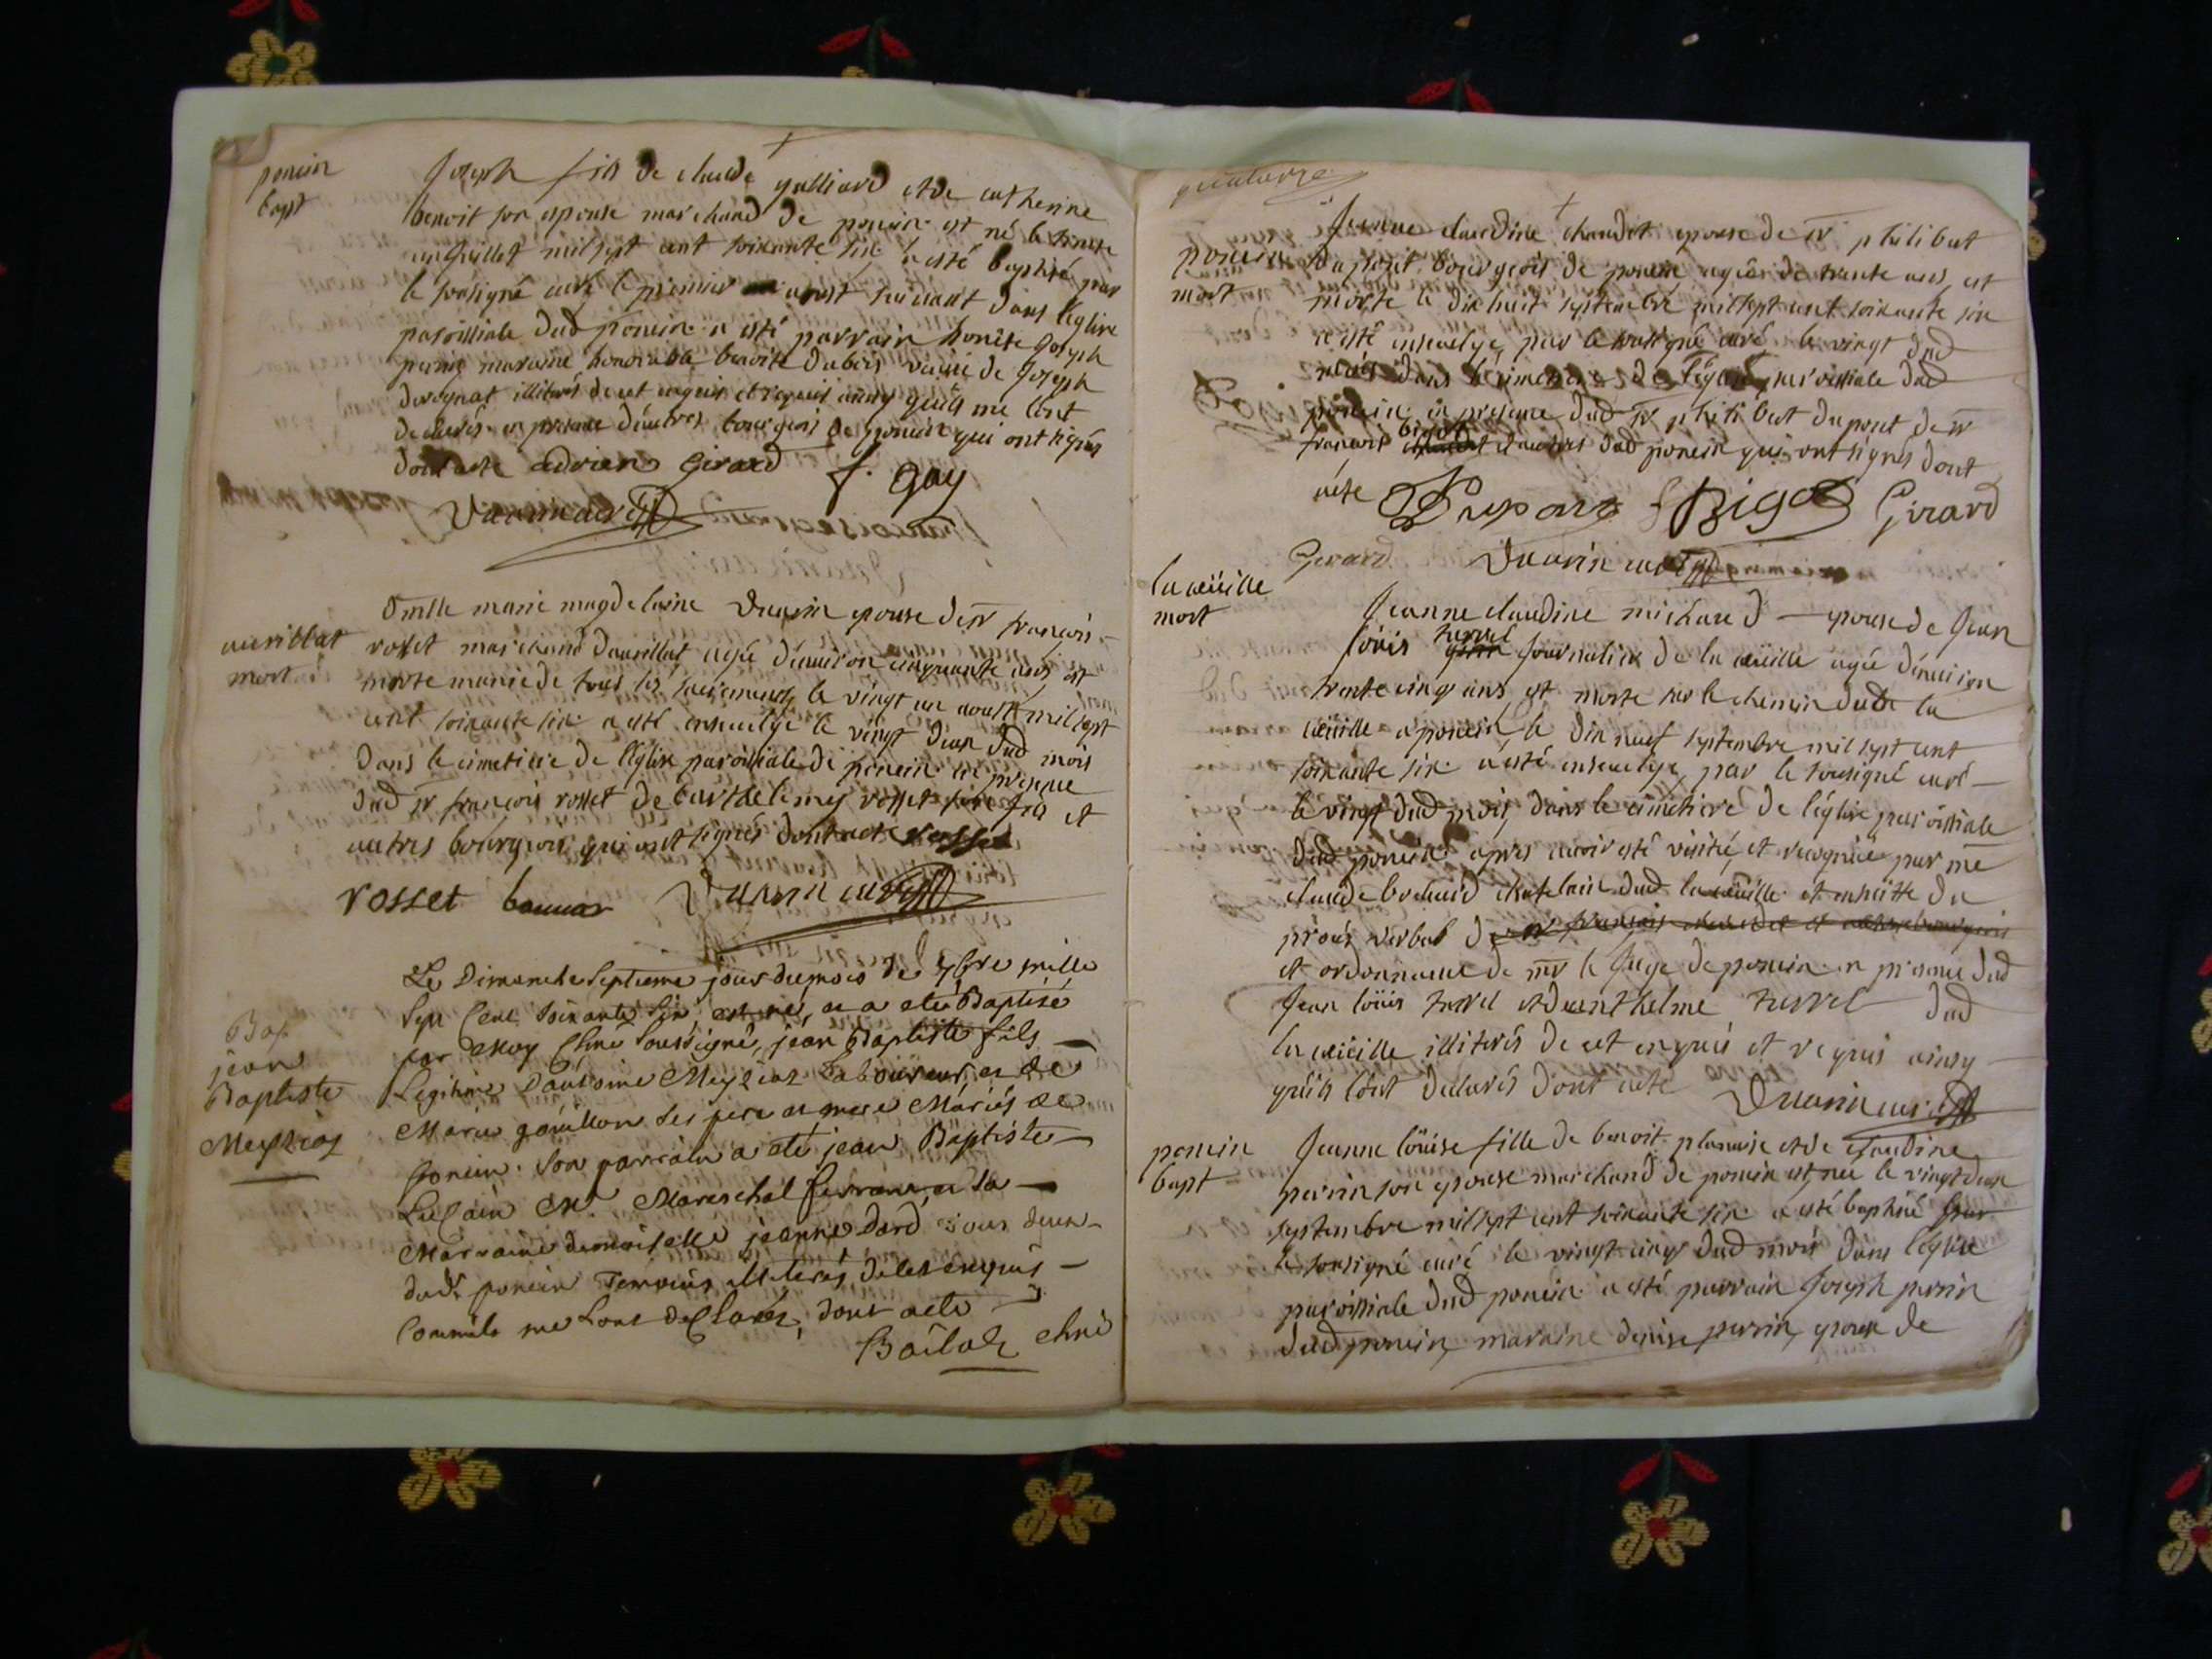 poncin
bapt
Joseph fils de claude galliard et de catherine
benoit son epouse marchand de poncin est né le trente
un juillet mil sept cent soixante six a esté baptisé par
le sousigné curé le premier aoust suivant dans l'eglise
paroissiale dud poncin a esté parrain honête Joseph
perrin maraine honorable benoite dubois veuve de Joseph
illiterés de cet enquis et requis ainsy quils me l'ont
declarés en presence d'autres bourgeois de poncin qui ont signés
dont acte adrien Girard f. Gay
Duarin curé
aurillat
mort
Dmlle marie magdelaine Duarin epouse de sr françois
rosset marchand d'aurillat agée d'environ cinquante ans est
morte munie de tous les sacremens le vingt un aoust mil sept
cent soixante six a esté ensevelye le vingt deux dud mois
dans le cimetiere de l'eglise paroissiale de poncin en presence
dud sr françois rosset de barthelemy rosset son fils et
autres bourgeois qui ont signés dont acte rosset
rosset Duarin curé
Bap.
jean
Baptiste
Meyziaz
Le Dimanche septieme jour du mois de 7bre mille
sept Cent soixante six est né, et a eté Baptisé
par Moy Chne soussigné, jean Baptiste fils
Legitime d'antoine Meyziaz Laboureur, et de
Marie goüillon ses pere et mere Mariés de
poncin. son parrain a eté jean Baptiste
Me Mareschal ferrant, et sa
Marraine demoiselle jeanne dard tous deux
dudt poncin Temoins illiterés de ces enquis
Comm'ils me L'ont déClarés, dont acte
Boilod chne
quatorze
poncin
mort
Jeanne claudine chaudet epouse de sr philibert
Dupont bourgeois de poncin agée de trente ans est
morte le dix huit septembre mil sept cent soixante six
a esté ensevelye par le sousigné curé le vingt dud
mois dans le cimetiere de l'eglise paroissiale dud
poncin en presence dud sr philibert dupont de sr
françois bigot d'autres dud poncin qui ont signés dont
acte Dupont f Bigot Girard
Gerard Duarin curé
la cuëille
mort
Jeanne claudine michaud epouse de Jean
loüis turrel journalier de la cuëille agée d'environ
trente cinq ans est morte sur le chemin dud la
cuëille a poncin le dix neuf septembre mil sept cent
soixante six a esté ensevelye par le sousigné curé
le vingt dud mois dans le cimetiere de l'eglise paroissiale
dud poncin apres avoir esté visitée et recognüe par me
claude bochard chatelain dud la cuëille et ensuitte du
procés verbal de sr françois chaudet et autres bourgeois
et ordonnance de mr le Juge de poncin en presence dud
Jean loüis turrel et d'anthelme turrel dud
la cuëille illiterés de cet enquis et requis ainsy
qu'ils l'ont declarés dont acte Duarin curé
poncin
bapt
Jeanne loüise fille de benoit et de claudine
perrin son epouse marchand de poncin est née le vingt deux
septembre mil sept cent soixante six a esté baptisé par
le sousigné curé le vingt cinq dud mois dans l'eglise
paroissiale dud poncin a esté parrain Joseph perrin
dud poncin maraine denise perrin epouse de